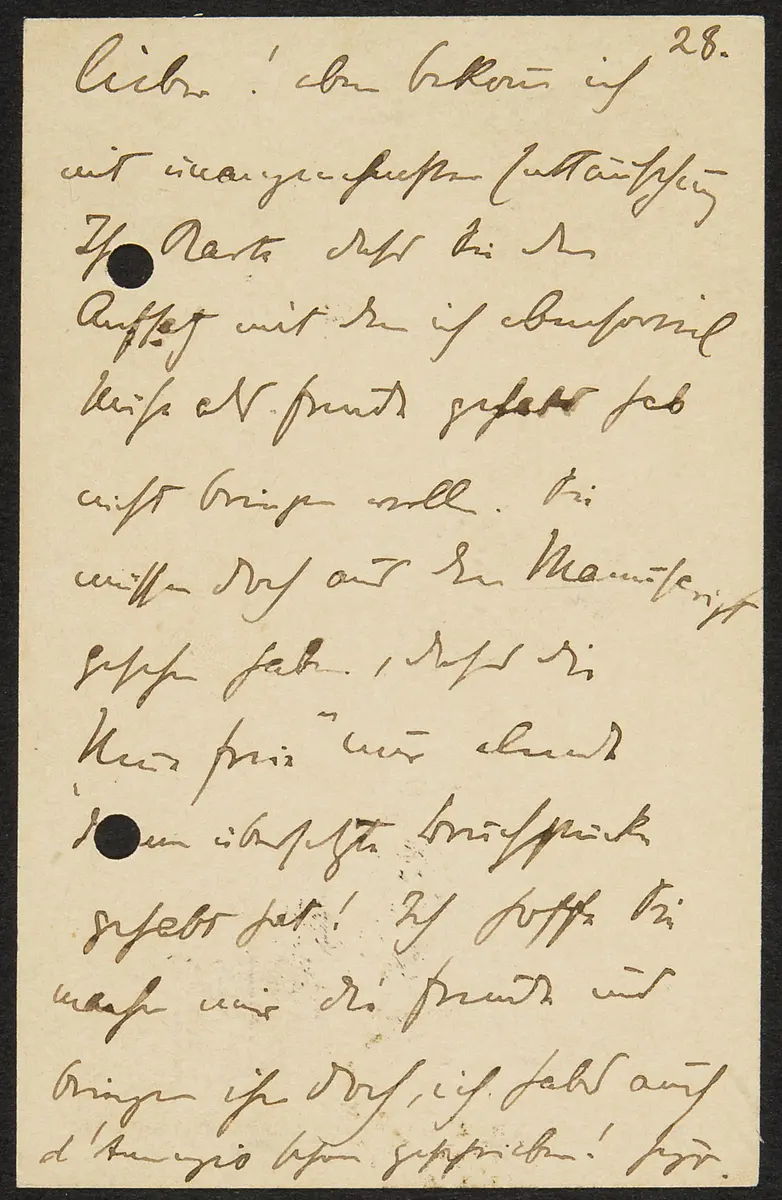 28.
lieber! eben bekom̄ ich
mit unangenehmster Enttäuschung
Ihre Karte dass Sie den
Aufsatz mit dem ich ebensoviel
Mühe als Freude gehabt hab
nicht bringen wollen. Sie
müssen doch aus dem Manuscript
gesehen haben, dass die
Neue freie" nur elende
übersetzte Bruchstücke
gehabt hat! Ich hoffe Sie
machen mir die Freude und
bringen ihn doch, ich habs auch
d'Annunzio schon geschrieben!